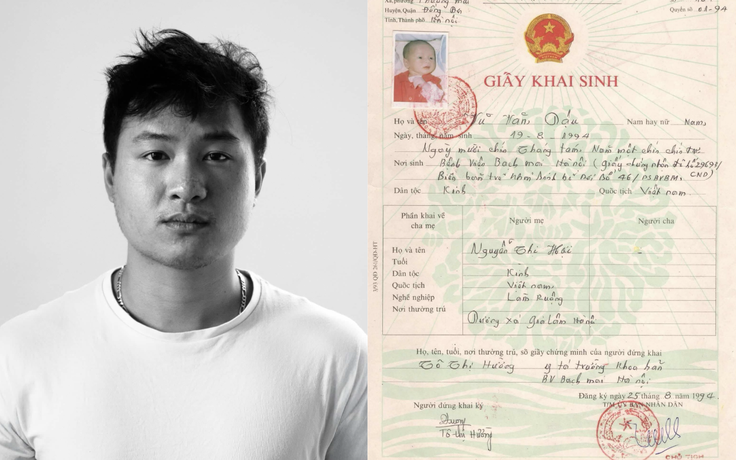 Xã, phường Phương Mai
Huyện, Quận Đống Đa
Tỉnh, Thành phố Hà Nội
Quyển số 01-94
GIẤY KHAI SINH
Họ và tên Vũ Văn Dấu Nam hay nữ Nam
Ngày, tháng, năm sinh 19.8.1994
Ngày mười chín tháng tám, Năm một chín chín tư
Nơi sinh Bệnh Viện Bạch mai Hà nội (giấy chứng nhận
Biên bản trẻ 46/PSBVBM, CND)
Dân tộc Kinh Quốc tịch Việt nam
Phần khai về cha mẹ Người mẹ Người cha
Họ và tên Nguyễn Thị -
Tuổi
Dân tộc Kinh
Quốc tịch Việt nam
Nghề nghiệp Làm Ruộng
Nơi thường trú Dương xá Gia Lâm Hà nội
Họ, tên, tuổi, nơi thường trú, số giấy chứng minh của người đứng khai
Tô Thị Hường y tá trưởng Khoa
BV Bạch mai Hà nội
Đăng ký ngày 25 tháng 8 năm 1994
Người đứng khai ký
TM. ỦY BAN NHÂN DÂN
Tô Thị Hường
CHỦ TỊCH